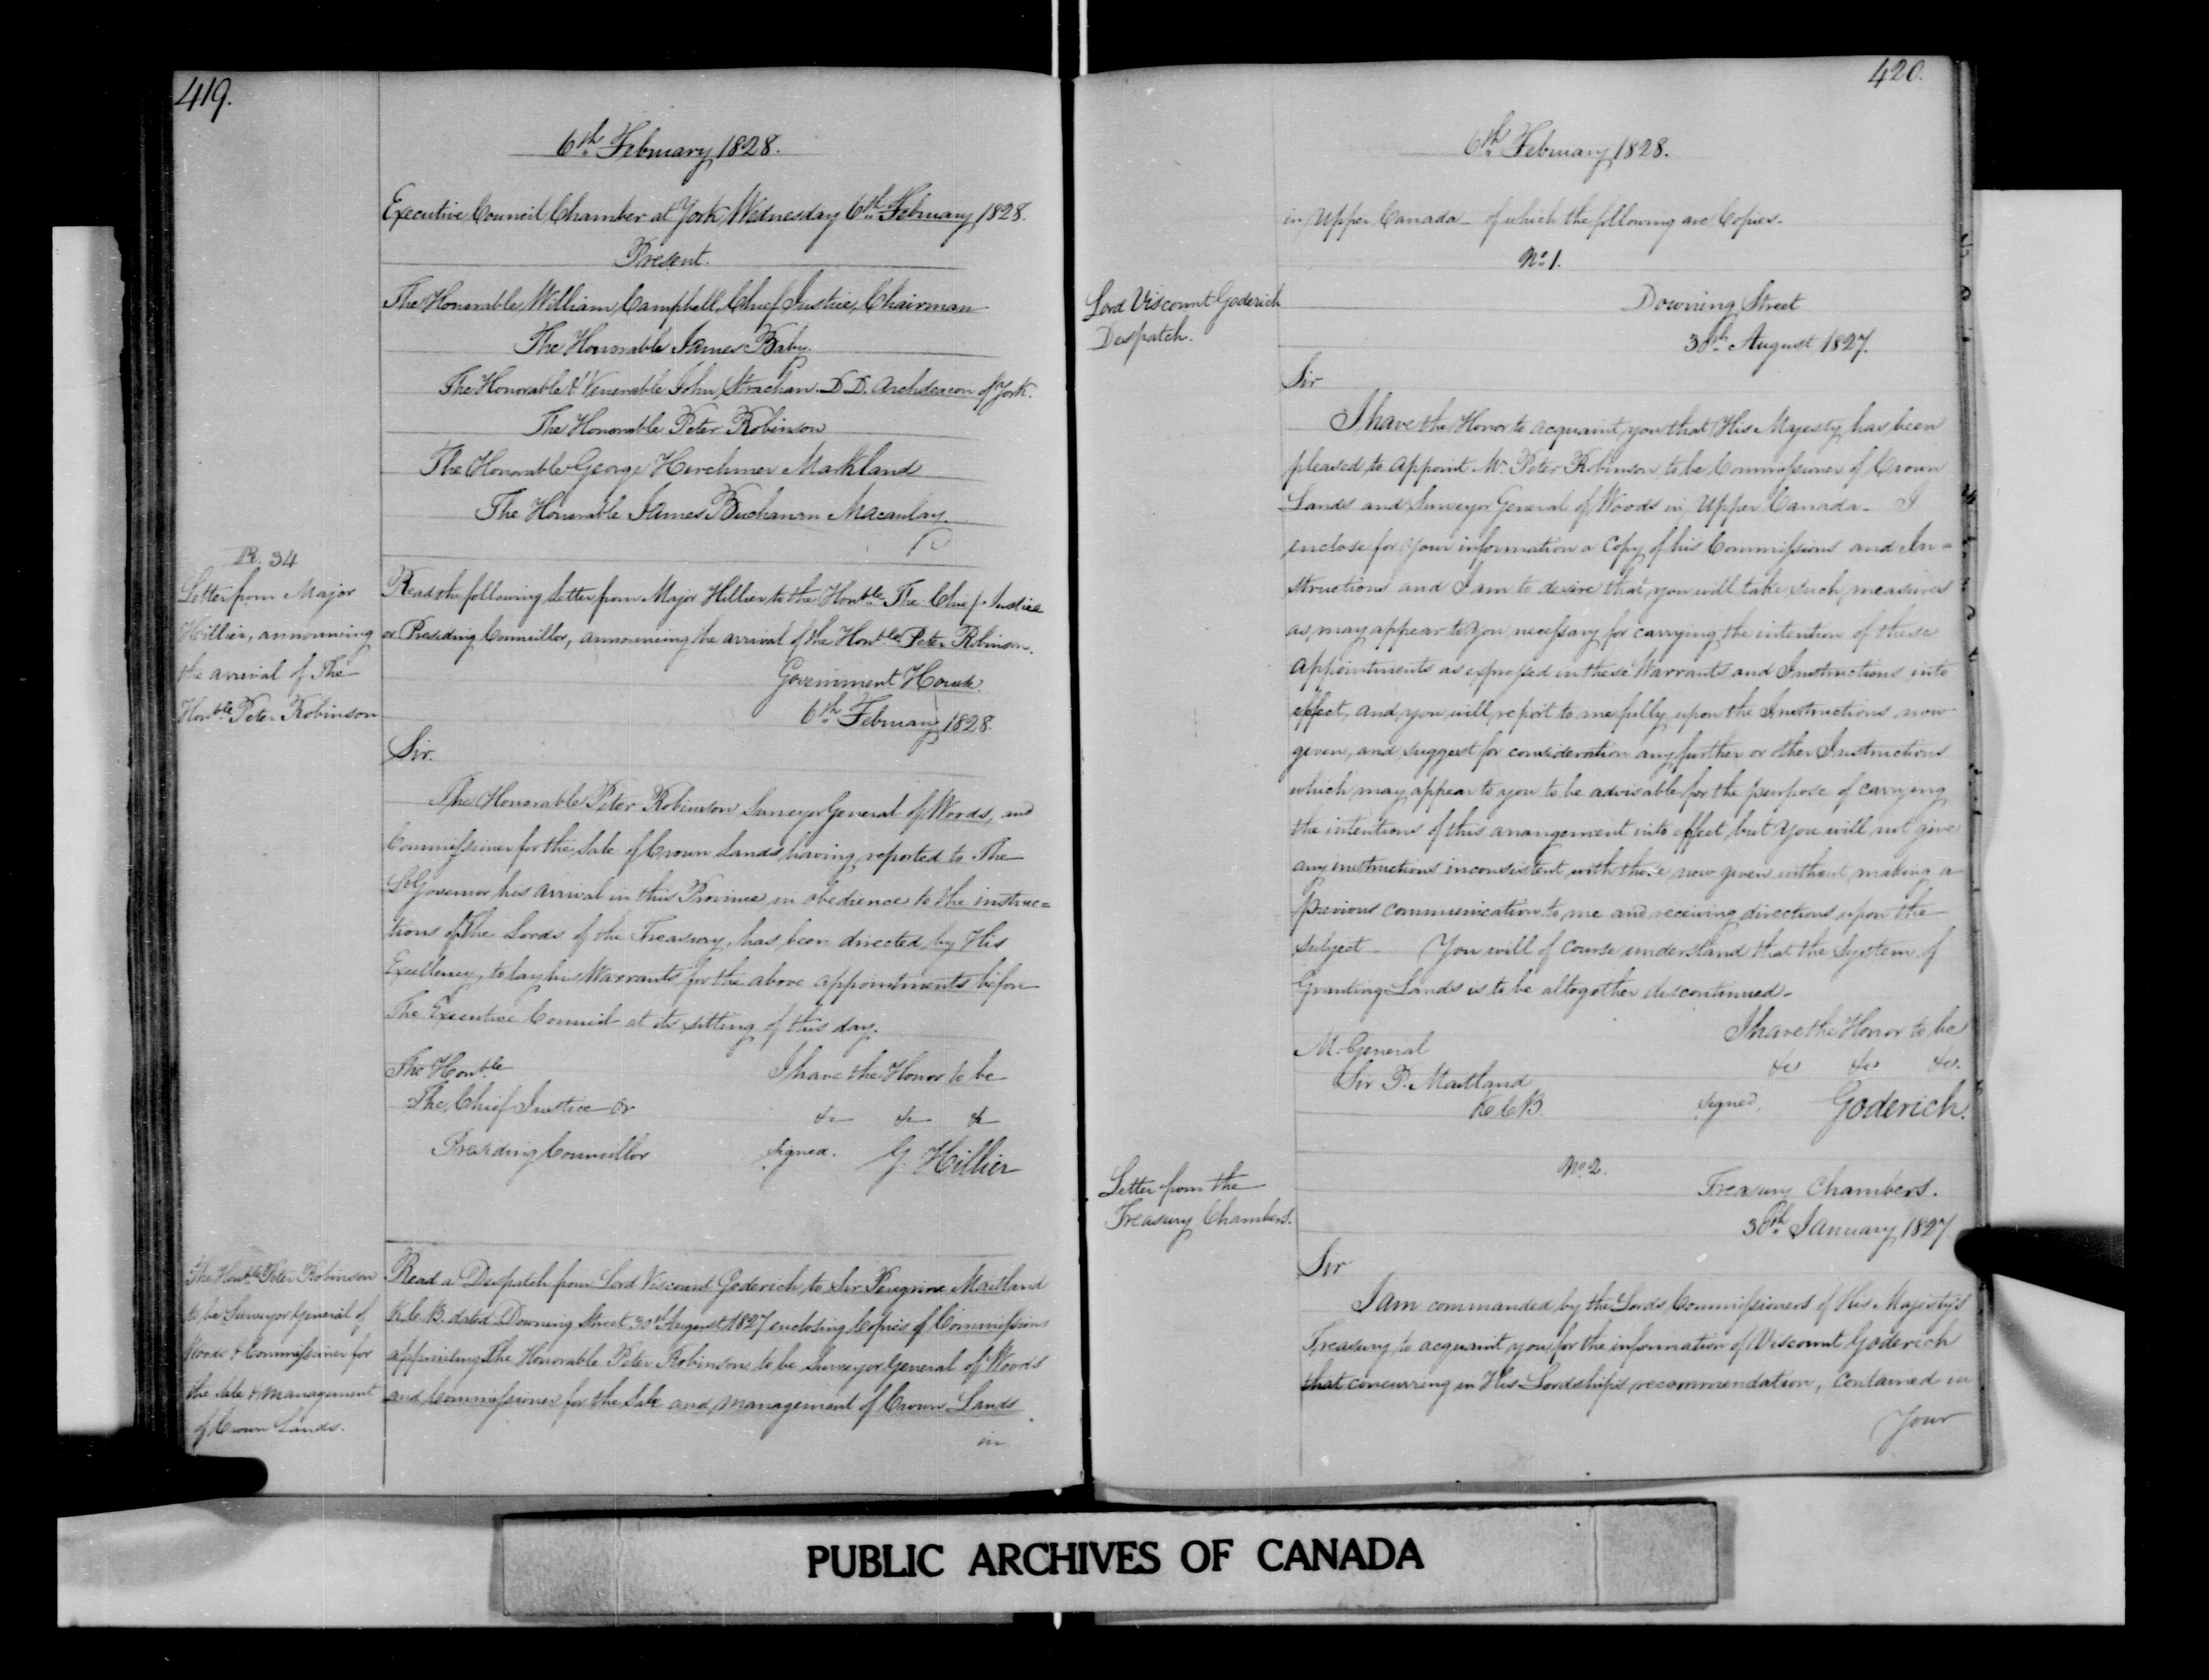 419.
6th February 1828.
Executive Council Chamber at York, Wednesday 6th February 1828.
Present.
The Honorable William Campbell, Chief Justice, Chairman
The Honorable James Baby.
The Honorable & Venerable John Strachan. D.D. Archdeacon of York.
The Honorable Peter Robinson
The Honorable George Herchmer Markland
The Honorable James Buchanan Macaulay.
R. 34
Letter from Major
Hillier, announcing
the arrival of The
Honble Peter Robinson
Read the following letter from Major Hillier to the Honble The Chief Justice
or Presiding Councillor, announcing the arrival of the Honble Peter Robinson.
Government House.
6th February 1828.
Sir.
The Honorable Peter Robinson Surveyor General of Woods, and
Commissioner for the Sale of Crown Lands, having reported to The
Lt Governor his arrival in this Province, in obedience to the instruc=
tions of The Lords of the Treasury, has been directed by His
Excellency, to lay his Warrants for the above appointments before
The Executive Council at its sitting of this day.
The Honble
I have the Honor to be
The Chief Justice or
&c &c &c
Presiding Councillor
signed. G. Hillier
The Honble Peter Robinson
to be Surveyor General of
Woods & Commissioner for
the Sale & management
of Crown Lands.
Read a Despatch from Lord Viscount Goderich, to Sir Peregrine Maitland
K.C.B. dated Downing Street 30th August 1827 enclosing Copies of Commissions
appointing The Honorable Peter Robinson to be Surveyor General of Woods
and Commissioner for the Sale and Management of Crown Lands
in
420.
6th February 1828.
in Upper Canada - of which the following are Copies.
No 1.
Lord Viscount Goderich
Despatch.
Downing Street
30th August 1827.
Sir
I have the Honor to acquaint you that His Majesty has been
pleased to appoint Mr Peter Robinson to be Commissioner of Crown
Lands and Surveyor General of Woods in Upper Canada - I
enclose for your information a Copy of his Commissions and In=
structions and I am to desire that you will take such measures
as may appear to you necessary for carrying the intention of these
appointments as expressed in these Warrants and Instructions into
effect, and you will report to me fully upon the Instructions now
given, and suggest for consideration any further or other Instructions
which may appear to you to be advisable for the purpose of carrying
the intentions of this arrangement into effect but you will not give
any instructions inconsistent with those now given without making a
previous communication to me and receiving directions upon the
subject - You will of course understand that the System of
Granting Lands is to be altogether discontinued -
I have the Honor to be
M. General
&c &c &c.
Sir P. Maitland
K.C.B.
signed. Goderich.
No 2.
Letter from the
Treasury Chambers.
Treasury Chambers.
30th January 1827.
Sir
I am commanded by the Lords Commissioners of His Majesty's
Treasury to acquaint you for the information of Viscount Goderich
that concurring in His Lordship's recommendation, contained in
Your
PUBLIC ARCHIVES OF CANADA